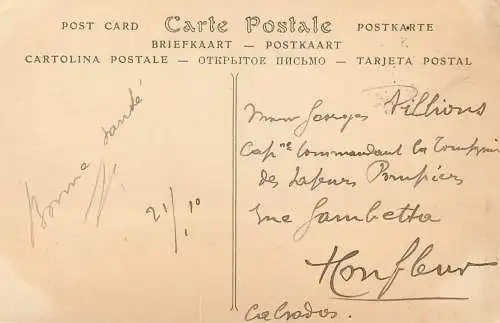 POST CARD Carte Postale POSTKARTE
BRIEFKAART — POSTKAART
CARTOLINA POSTALE — ОТКРЫТОЕ ПИСЬМО — TARJETA POSTAL
Bonne santé
21/1 10
Georges Villions
Capne Commandant la Compagnie
des Sapeurs Pompiers
rue Gambetta
Honfleur
Calvados.